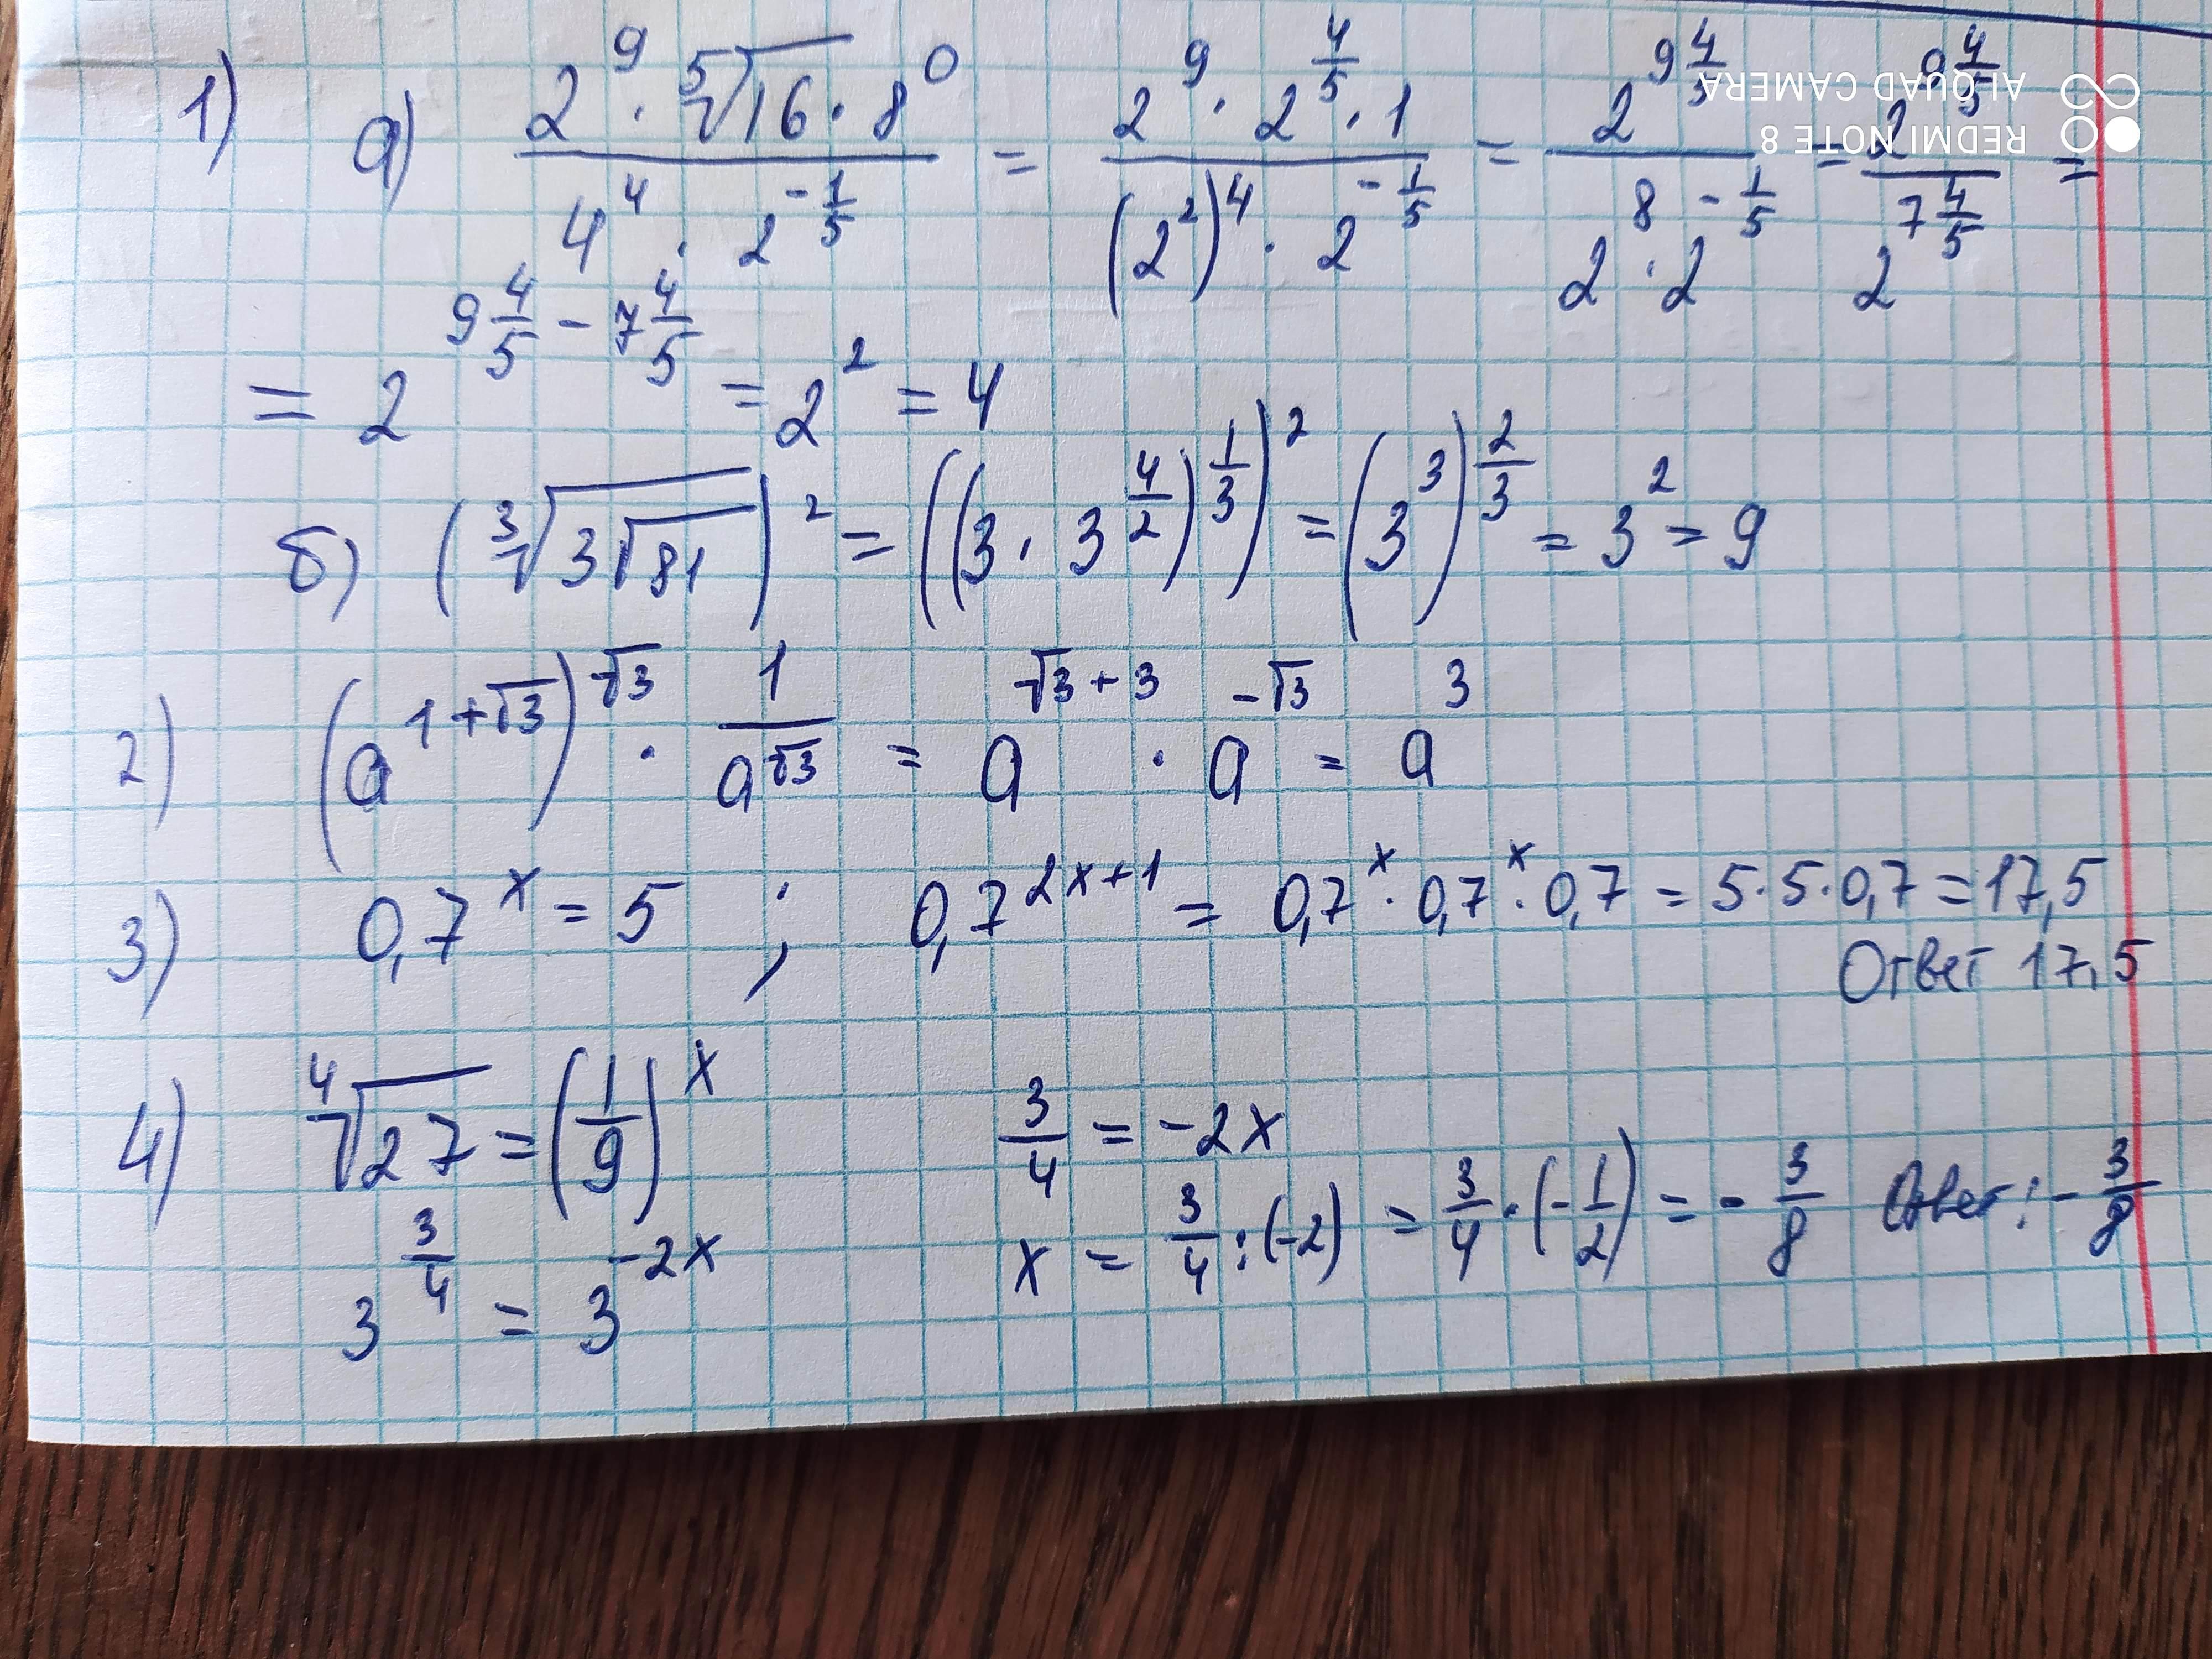 1) а) (2^9 · ⁵√16 · 8^0)/(4^4 · 2^(-1/5)) = (2^9 · 2^(4/5) · 1)/((2^2)^4 · 2^(-1/5)) = 2^(9 4/5)/(2^8 · 2^(-1/5)) = 2^(9 4/5)/2^(7 4/5) =
= 2^(9 4/5 - 7 4/5) = 2^2 = 4
б) (³√(3√81))^2 = ((3 · 3^(4/2))^(1/3))^2 = (3^3)^(2/3) = 3^2 = 9
2) (a^(1+√3))^√3 · 1/a^√3 = a^(√3+3) · a^(-√3) = a^3
3) 0,7^x = 5 ; 0,7^(2x+1) = 0,7^x · 0,7^x · 0,7 = 5·5·0,7 = 17,5
Ответ 17,5
4) ⁴√27 = (1/9)^x
3^(3/4) = 3^(-2x)
3/4 = -2x
x = 3/4 : (-2) = 3/4 · (-1/2) = -3/8 Ответ: -3/8
REDMI NOTE 8
AI QUAD CAMERA